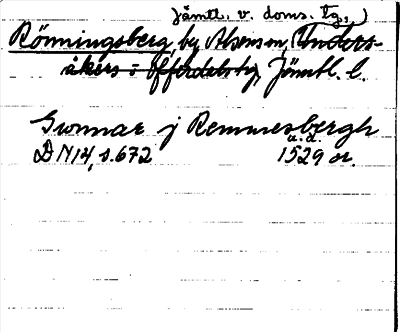 Jämtl. v. doms. tg.)
Rönningsberg by, Alsen sn, Unders-
åkers o Offerdals tg, Jämtl. l.
Gunnar j Remmesbergh
DN 14, s. 672 a.d. 1529 or.